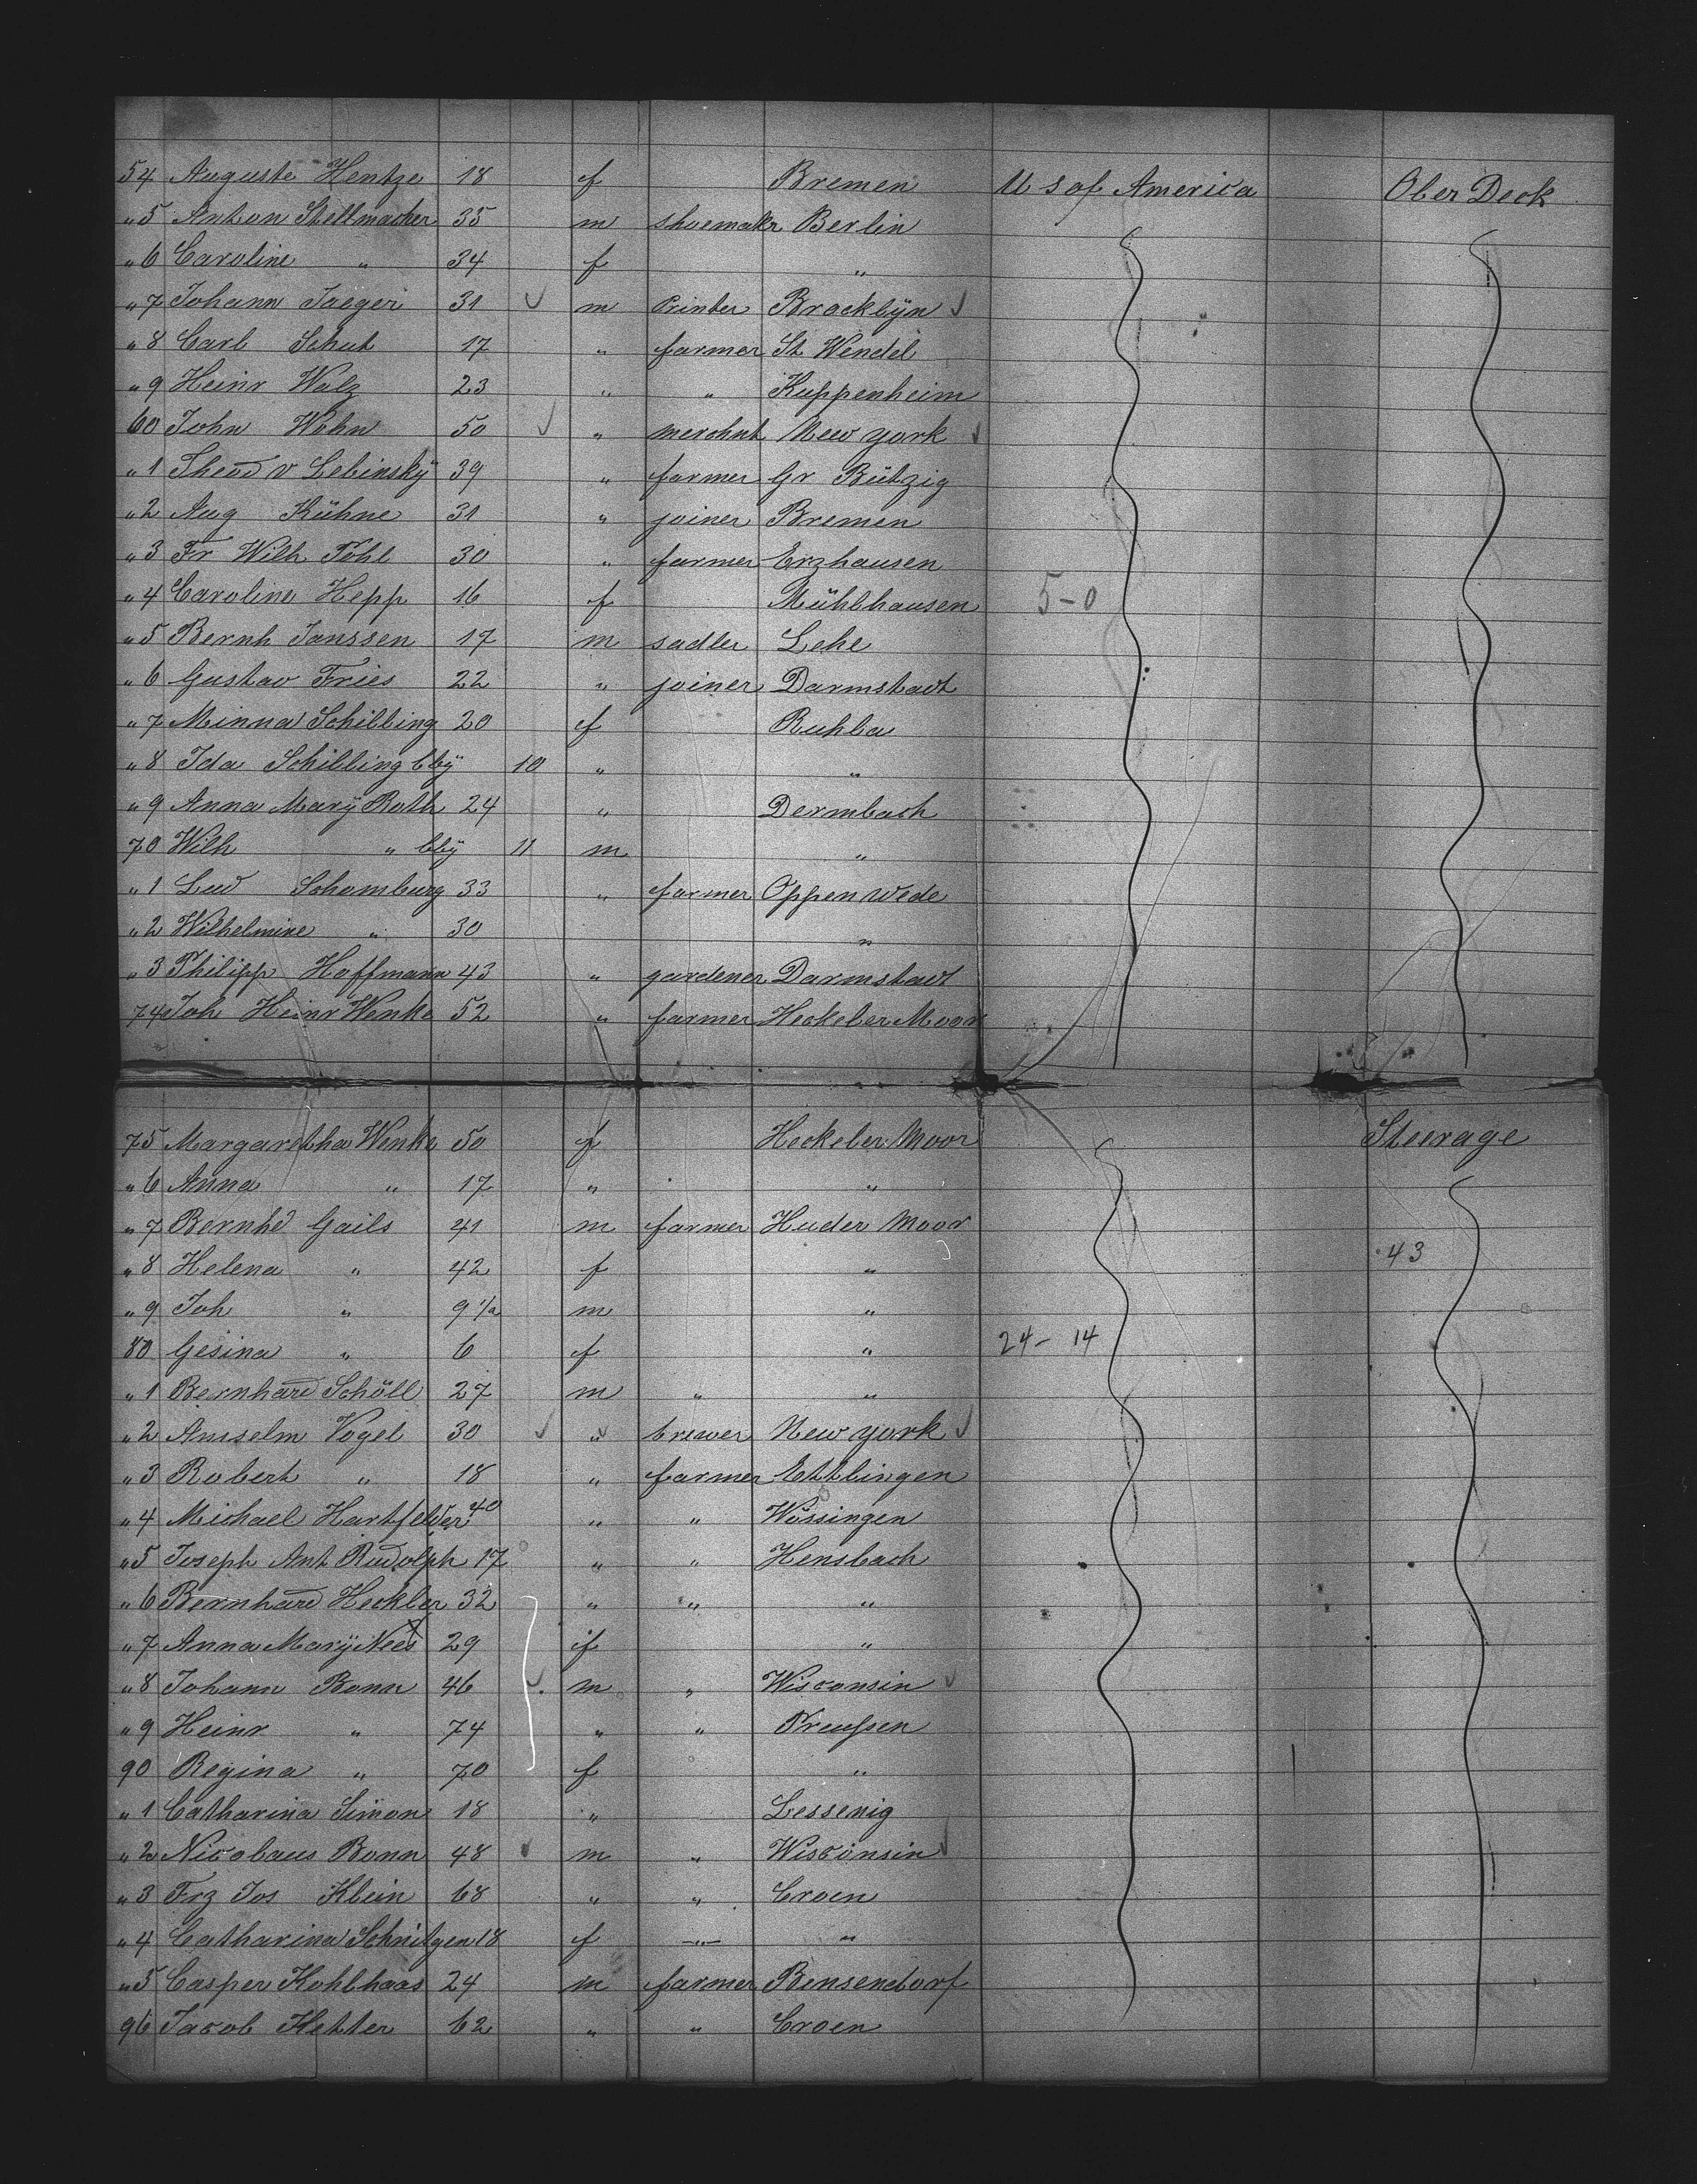 54 Auguste Hentze 18 f Bremen U S of America Ober Deck
" 5 Anton Stellmacher 35 m shoemakr Berlin
" 6 Caroline " 34 f "
" 7 Johann Jaeger 31 m Printer Brocklÿn
" 8 Carl Schut 17 " farmer St Wendel
" 9 Heinr Walz 23 " " Kuppenheim
60 John Wehn 50 " merchnt New york
" 1 Theod v Lebinskÿ 39 " farmer Gr Bützig
" 2 Aug Kühne 31 " joiner Bremen
" 3 Fr Wilh Pohl 30 " farmer Erzhausen
" 4 Caroline Hepp 16 f Mühlhausen 5-0
" 5 Bernh Janssen 17 m sadler Lehe
" 6 Gustav Fries 22 " joiner Darmstadt
" 7 Minna Schilling 20 f Ruhla
" 8 Ida Schilling bbÿ 10 " "
" 9 Anna Marÿ Roth 24 " Dermbach
70 Wilh " bbÿ 11 m "
" 1 Lud Schomburg 33 " farmer Oppenwede
" 2 Wilhelmine " 30 "
" 3 Philipp Hoffmann 43 " gardener Darmstadt
74 Joh Heinr Wenke 52 " farmer Heckeler Moor
75 Margaretha Wenke 50 f Heckeler Moor Steerage
" 6 Anna " 17 " "
" 7 Bernhd Gails 41 m farmer Huder Moor
" 8 Helena " 42 f " 43
" 9 Joh " 9 1/2 m "
80 Gesina " 6 f " 24- 14
" 1 Bernhard Schöll 27 m " "
" 2 Anselm Vogel 30 " brewer New york
" 3 Robert " 18 " farmer Ettlingen
" 4 Michael Hartfelder 40 " " Wössingen
" 5 Joseph Ant Rudolph 17 " " Hensbach
" 6 Bernhard Heckler 32 " " "
" 7 Anna Marÿ Nees 29 f "
" 8 Johann Bonn 46 m " Wisconsin
" 9 Heinr " 74 " " Preußen
90 Regina " 70 f "
" 1 Catharina Simon 18 " Lessenig
" 2 Nicolaus Bonn 48 m " Wisconsin
" 3 Frz Jos Klein 68 " " Croen
" 4 Catharina Schnitgen 18 f " "
" 5 Casper Kohlhaas 24 m farmer Binsendorf
96 Jacob Ketter 62 " " Croen